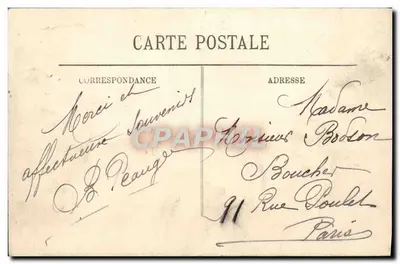 CARTE POSTALE
CORRESPONDANCE
Merci et
affectueux souvenirs
B
ADRESSE
Madame
Monsieur Bodson
Boucher
91 Rue Poulet
Paris